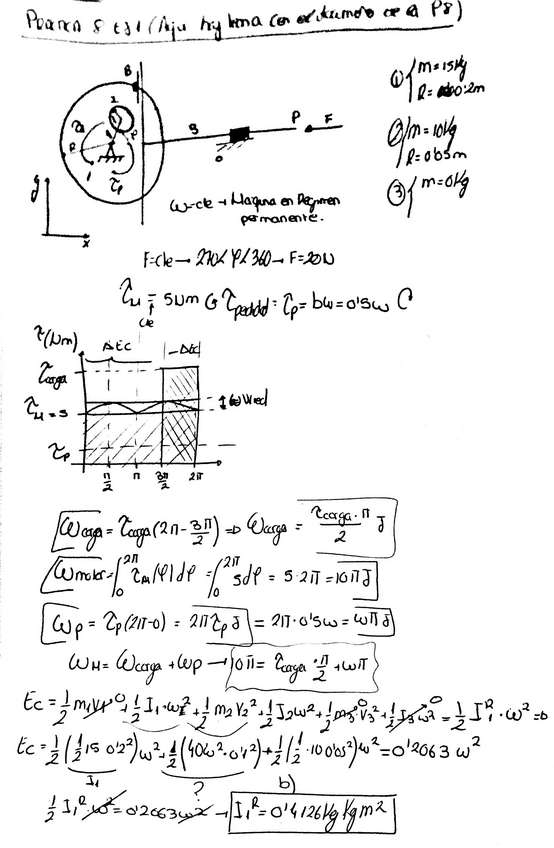 Problema 8 Ej1 (
B
2
R
1
τp
S
O
P
F
① { m=15kg
R=0'2m
② { m=10kg
R=0'05m
③ { m=0kg
y
x
ω=cte → Maquina en Regimen
permanente.
F=cte → 270<φ<360 → F=20N
τM = 5Nm τpedal = τp = bω = 0'5ω
cte
τ(Nm)
ΔEC
-ΔEC
τcarga
τM = 5
τp
π/2
π
3π/2
2π
Wcarga = τcarga (2π - 3π/2) ⇒ Wcarga = τcarga · π / 2 J
Wmotor = ∫₀^2π τM(φ)dφ = ∫₀^2π 5dφ = 5·2π = 10π J
Wp = τp(2π-0) = 2πτp J = 2π·0'5ω = ωπ J
WM = Wcarga + Wp → 10π = τcarga · π/2 + ωπ
Ec = 1/2 m1V1² 0 + 1/2 I1·ω1² + 1/2 m2V2² + 1/2 I2ω² + 1/2 m3V3² 0 + 1/2 I3ω² 0 = 1/2 I1^R · ω² =>
Ec = 1/2 (1/2 15 0'2²) ω² + 1/2 (10ω²·0'1²) + 1/2 (1/2 · 10 0'05²) ω² = 0'2063 ω²
I1
?
b)
1/2 I1^R · ω² = 0'2063 ω² → I1^R = 0'4126 kg kgm²